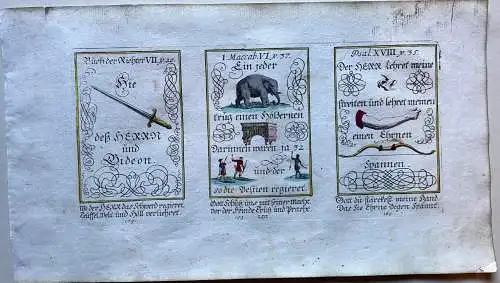 Buch der Richter VII. v. 20.
Hie
deß HERRN
und
Gideon.
Wo der HERR das Schwerd regieret
Teuffel, Welt und Höll verliehret
1. Maccab. VI. v. 37.
Ein jeder
trug einen Höltzernen
Darinnen waren ja 32
und der
so die Bestien regieret
Gott Schütz uns mit seiner macht
vor der Feinde
Psal. XVIII. v. 35.
Der HERR lehret meine
streiten und lehret meinen
einen Ehrnen
Spannen.
Gott du stärckest meine Hand